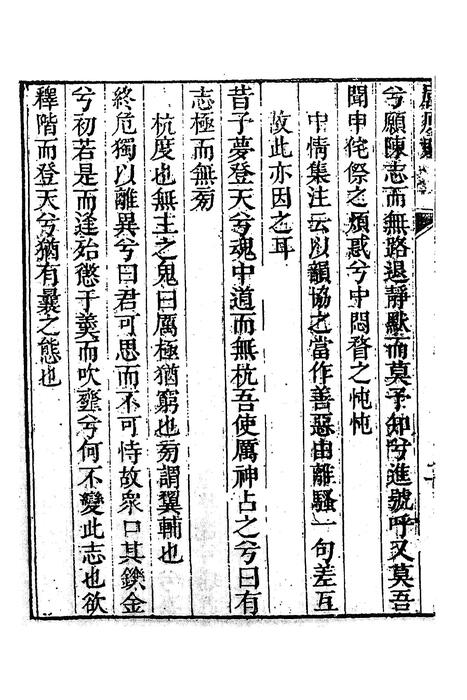 兮願陳志而無路退靜默而莫予知兮進號呼又莫吾
聞申侘傺之煩惑兮中悶瞀之忳忳
中情集注云以韻協之當作善惡由離騷一句差互
故此亦因之耳
昔予夢登天兮魂中道而無杭吾使厲神占之兮曰有
志極而無㫄
杭度也無主之鬼曰厲極猶窮也㫄謂翼輔也
終危獨以離異兮曰君可思而不可恃故衆口其鑠金
兮初若是而逢殆懲于羹而吹𩐎兮何不變此志也欲
釋階而登天兮猶有曩之態也